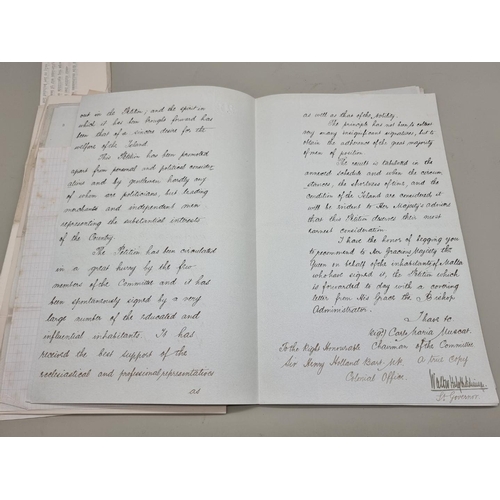 out in the Petition; and the spirit in
which it has been brought forward has
been that of a sincere desire for the
welfare of the Island
This Petition has been promoted
apart from personal and political consider-
ations and by gentlemen hardly any
of whom are politicians, but leading
merchants and independent men
representing the substantial interests
of the Country.
The Petition has been circulated
in a great hurry by the few
members of the Committee and it has
been spontaneously signed by a very
large number of the educated and
influential inhabitants. It has
received the best support of the
ecclesiastical and professional representatives
as
as well as that of the nobility.
The principle has not been to obtain
very many insignificant signatures, but to
obtain the adherence of the great majority
of men of position.
The result is exhibited in the
annexed schedule and when the circum
stances, the shortness of time, and the
condition of the Island are considered it
will be evident to Her Majesty's advisers
that this Petition deserves their most
earnest consideration.
I have the honor of begging you
to recommend to Her Gracious Majesty the
Queen on behalf of the inhabitants of Malta
who have signed it, the Petition which
is forwarded to day with a covering
letter from His Grace the Bishop
Administrator.
I have &c
(sigd) Carlo Maria Muscat
Chairman of the Committee
To the Right Honourable
Sir Henry Holland Bart. M.P.
Colonial Office.
A true Copy
Lt Governor.